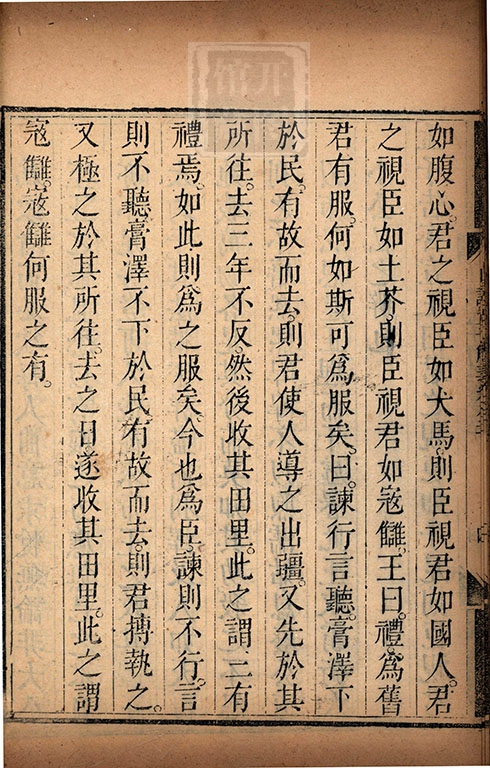 如腹心。君之視臣如犬馬。則臣視君如國人。君
之視臣如土芥。則臣視君如寇讎。王曰。禮爲舊
君有服。何如斯可爲服矣。曰。諫行言聽。膏澤下
於民。有故而去。則君使人導之出疆。又先於其
所往。去三年不反。然後收其田里。此之謂三有
禮焉。如此則爲之服矣。今也爲臣。諫則不行。言
則不聽。膏澤不下於民。有故而去。則君搏執之。
又極之於其所往。去之日。遂收其田里。此之謂
寇讎。寇讎何服之有。